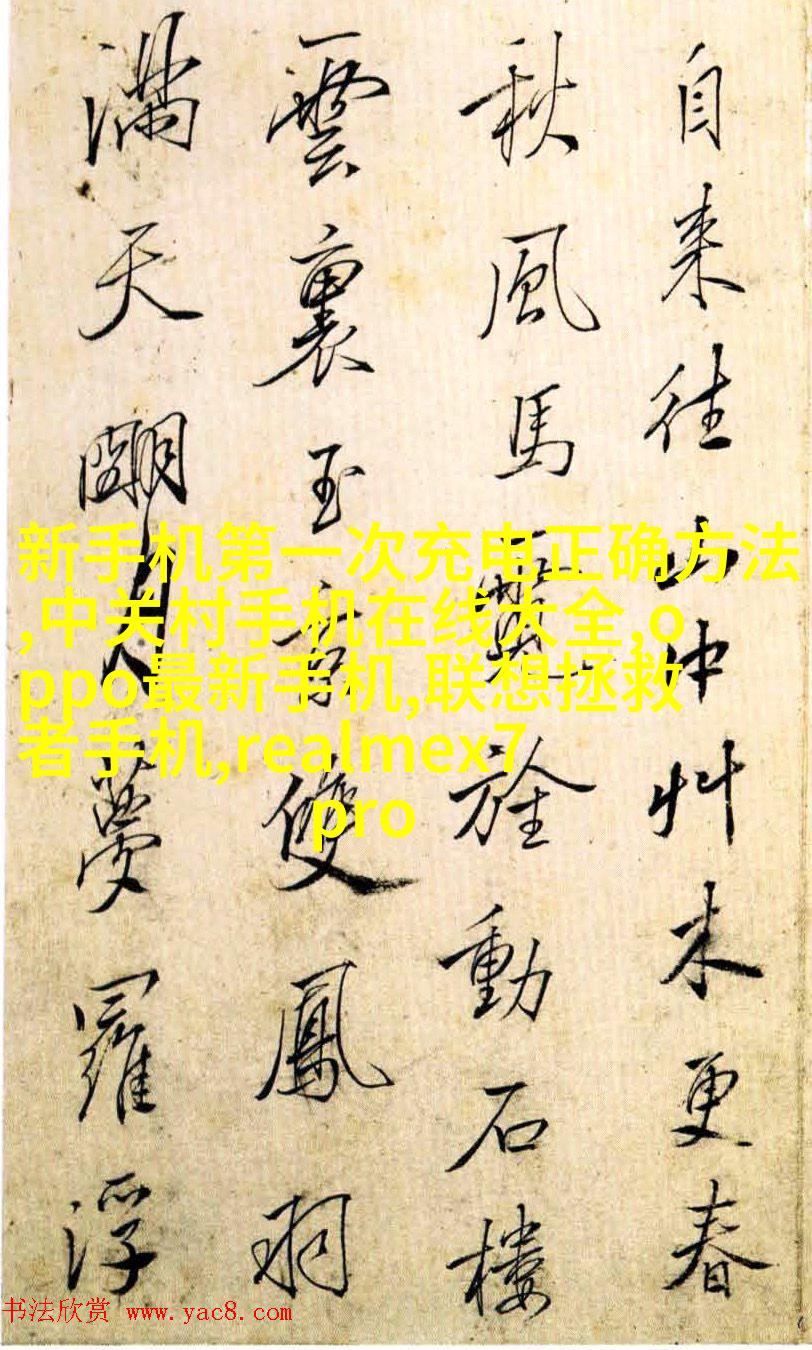 自来往山中艸木更春
秋風馬旌動石樓
雲裏玉雙鳳羽
滿天夢羅浮
新手机第一次充电正确方法
,中关村手机在线大全,o
ppo最新手机,联想拯救
者手机,realmex7
pro
书法欣赏 www.yac8.com